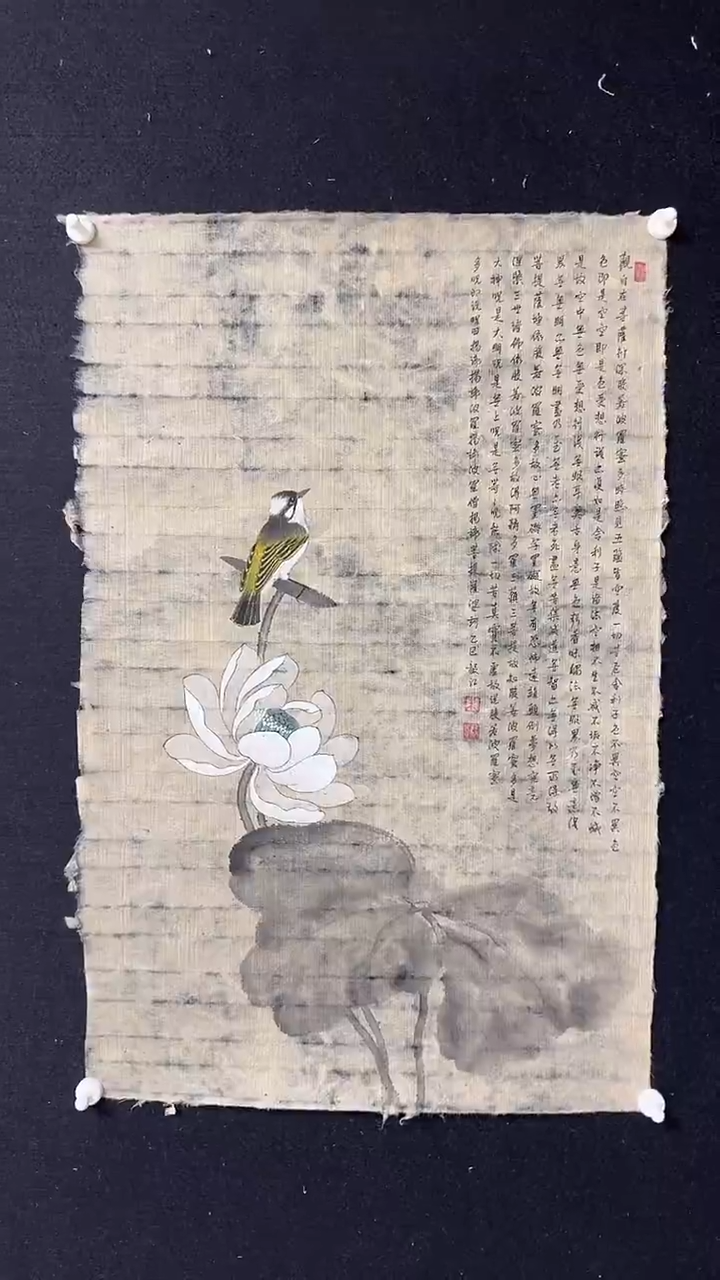 觀自在菩薩行深般若波羅蜜多時照見五蘊皆空度一切苦厄舍利子色不異空空不異色
色即是空空即是色受想行識亦復如是舍利子是諸法空相不生不滅不垢不淨不增不減
是故空中無色無受想行識無眼耳鼻舌身意無色聲香味觸法無眼界乃至無意識
界無無明亦無無明盡乃至無老死亦無老死盡無苦集滅道無智亦無得以無所得故
菩提薩埵依般若波羅蜜多故心無罣礙無罣礙故無有恐怖遠離顛倒夢想究竟
涅槃三世諸佛依般若波羅蜜多故得阿耨多羅三藐三菩提故知般若波羅蜜多是
大神呪是大明呪是無上呪是無等等呪能除一切苦真實不虛故說般若波羅蜜
多呪即說呪曰揭諦揭諦波羅揭諦波羅僧揭諦菩提薩婆訶乙巳